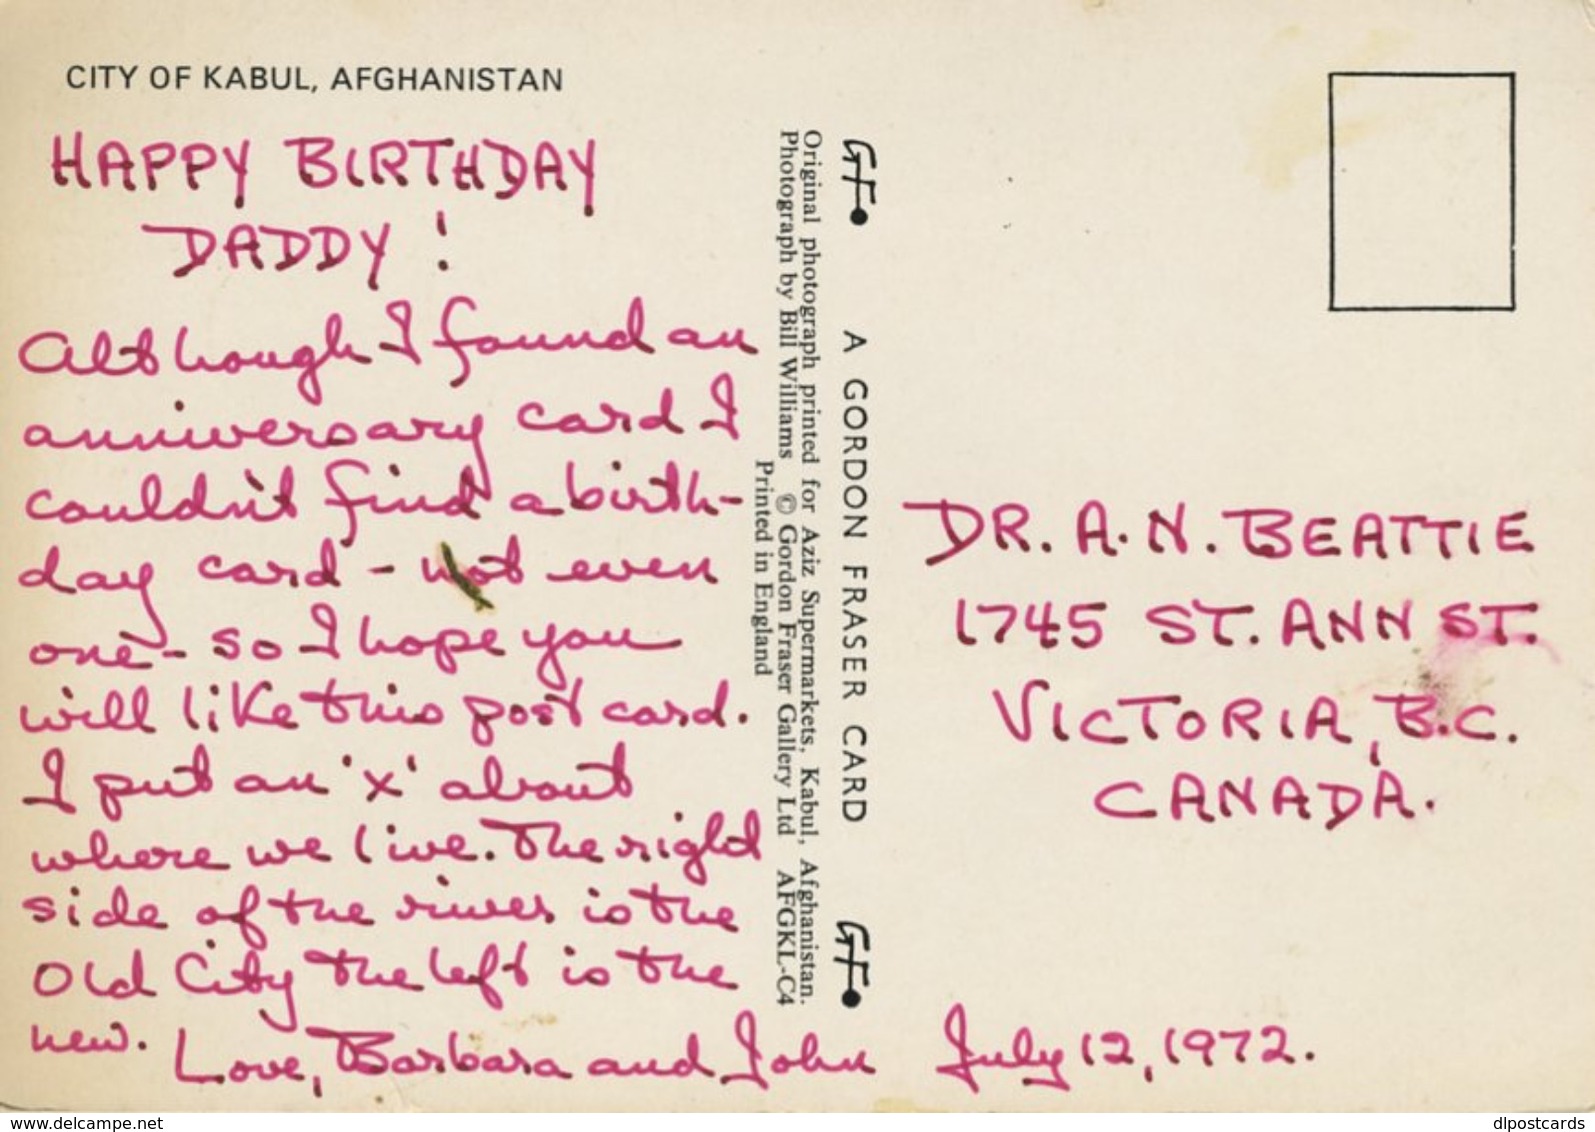 CITY OF KABUL, AFGHANISTAN
HAPPY BIRTHDAY
DADDY !
Although I found an
anniversary card I
couldn't find a birth-
day card - not even
one - so I hope you
will like this post card.
I put an 'x' about
where we live. The right
side of the river is the
Old City the left is the
new. Love, Barbara and John
GF
A GORDON FRASER CARD
GF
Original photograph printed for Aziz Supermarkets, Kabul, Afghanistan.
Photograph by Bill Williams © Gordon Fraser Gallery Ltd AFGKL-C4
Printed in England
DR. A. N. BEATTIE
1745 ST. ANN ST.
VICTORIA, B.C.
CANADA.
July 12, 1972.
www.delcampe.net
dlpostcards